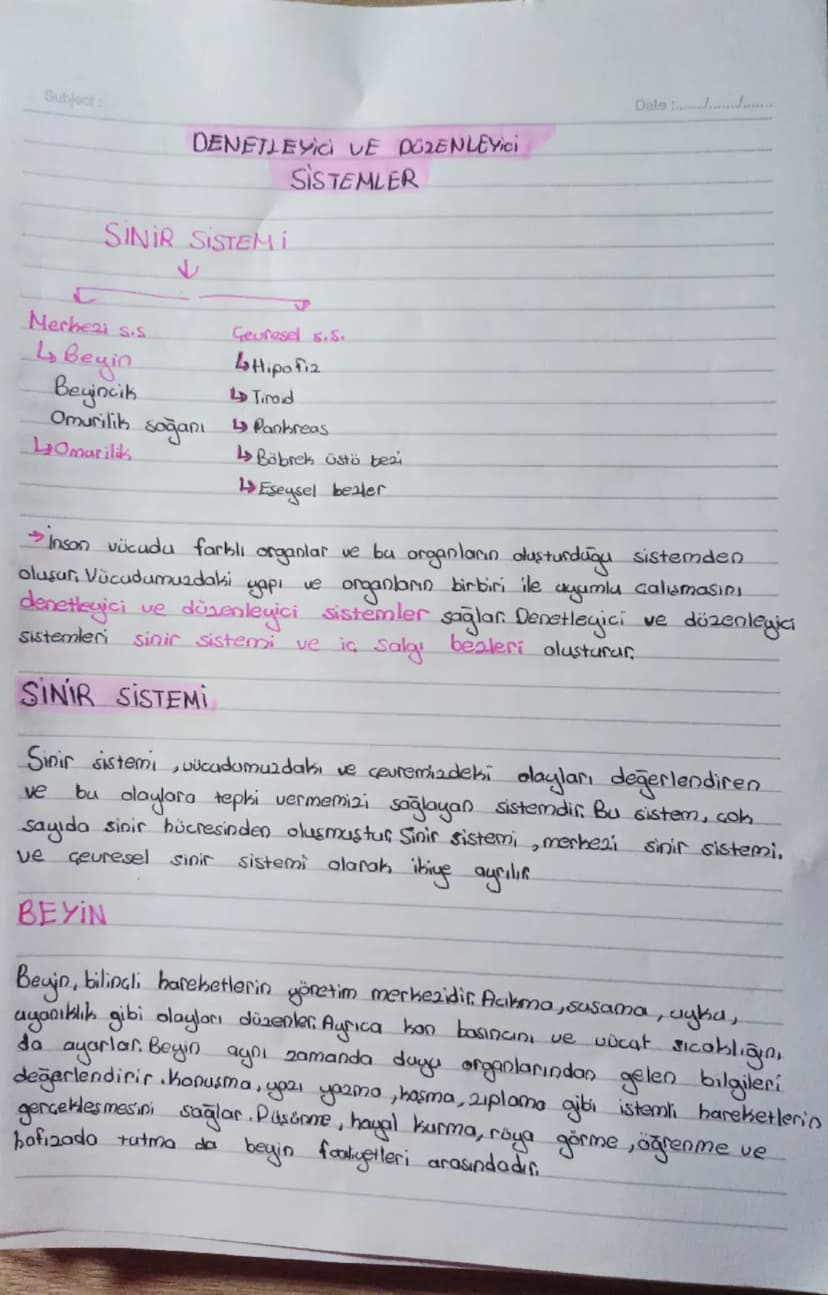 Subject:
Date :....../......./.......
DENETLEYİCİ VE DÜZENLEYİCİ
SİSTEMLER
SİNİR SİSTEMİ
↓
Merkezi s.s
Çevresel s.s.
↳ Beyin
↳ Hipofiz
Beyincik
↳ Tiroid
Omurilik soğanı
↳ Pankreas
↳ Omurilik
↳ Böbrek üstü bezi
↳ Eşeysel bezler
→ İnsan vücudu farklı organlar ve bu organların oluşturduğu sistemden
oluşur. Vücudumuzdaki yapı ve organların birbiri ile uyumlu çalışmasını
denetleyici ve düzenleyici sistemler sağlar. Denetleyici ve düzenleyici
sistemleri sinir sistemi ve iç salgı bezleri oluşturur.
SİNİR SİSTEMİ
Sinir sistemi, vücudumuzdaki ve çevremizdeki olayları değerlendiren
ve bu olaylara tepki vermemizi sağlayan sistemdir. Bu sistem, çok
sayıda sinir hücresinden oluşmuştur. Sinir sistemi, merkezi sinir sistemi.
ve çevresel sinir sistemi olarak ikiye ayrılır.
BEYİN
Beyin, bilinçli hareketlerin yönetim merkezidir. Acıkma, susama, uyku,
uyanıklık gibi olayları düzenler. Ayrıca kan basıncını ve vücut sıcaklığını
da ayarlar. Beyin aynı zamanda duyu organlarından gelen bilgileri
değerlendirir. Konuşma, yazı yazma, koşma, zıplama gibi istemli hareketlerin
gerçekleşmesini sağlar. Düşünme, hayal kurma, rüya görme, öğrenme ve
hafızada tutma da beyin faaliyetleri arasındadır.